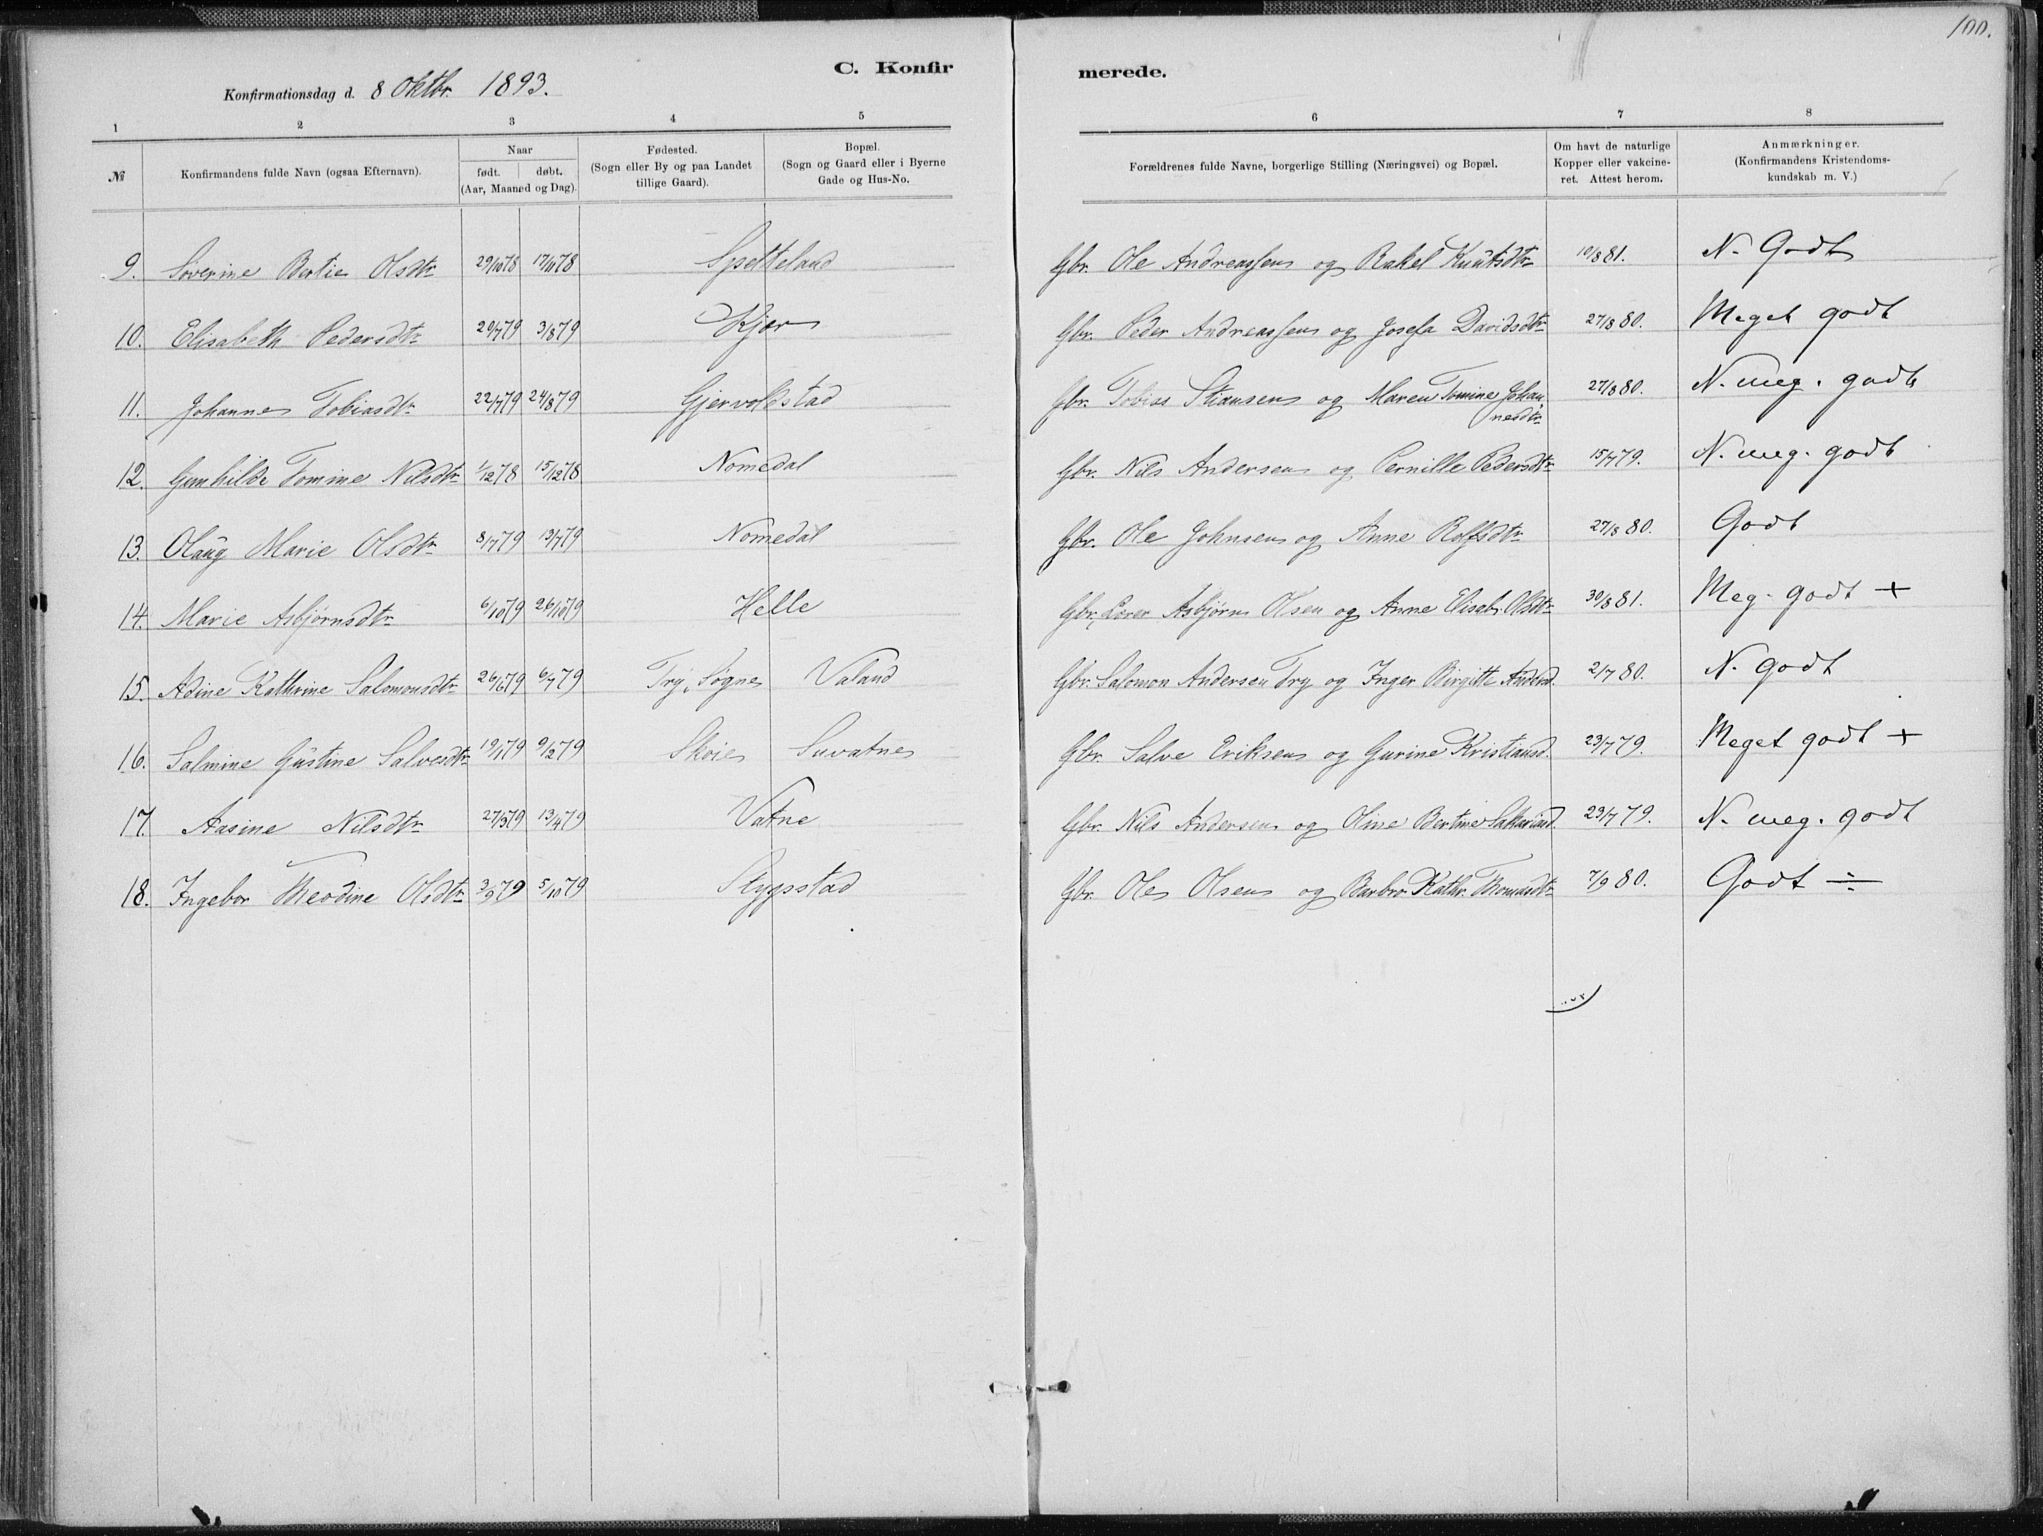 100.
C. Konfirmerede.
Konfirmationsdag d. 8 Oktbr. 1893.
1 2 3 4 5 6 7 8
№ Konfirmandens fulde Navn (ogsaa Efternavn). Naar født. døbt. (Aar, Maaned og Dag). Fødested. (Sogn eller By og paa Landet tillige Gaard). Bopæl. (Sogn og Gaard eller i Byerne Gade og Hus-No. Forældrenes fulde Navne, borgerlige Stilling (Næringsvei) og Bopæl. Om havt de naturlige Kopper eller vakcineret. Attest herom. Anmærkninger. (Konfirmandens Kristendomskundskab m. V.)
9. Severine Bertie Olsdtr 29/10 78 17/11 78 Spetteland Gbr. Ole Andreassen og Rakel Knutsdtr 10/8 81. N. Godt
10. Elisabeth Pedersdtr 20/7 79 3/8 79 Kjær Gbr. Peder Andreassen og Josefa Davidsdtr 27/8 80. Meget godt
11. Johanne Tobiasdtr 22/7 79 24/8 79 Gjervoldstad Gbr. Tobias Stiansen og Maren Tomine Johannesdtr 27/8 80. N. meg. godt
12. Gunhilde Tomine Nilsdtr 1/12 78 15/12 78 Nomedal Gbr. Nils Andersen og Pernille Pedersdtr 15/7 79. N. meg. godt
13. Olaug Marie Olsdtr 8/7 79 13/7 79 Nomedal Gbr. Ole Johnsen og Anne Rolfsdtr 27/8 80. Godt
14. Marie Asbjørnsdtr 6/10 79 26/10 79 Helle Gbr., Lærer Asbjørn Olsen og Anne Elisab. Olsdtr 30/8 81. Meg. godt +
15. Adine Kathrine Salomonsdtr 26/6 79 6/7 79 Try, Søgne Valand Gbr. Salomon Andersen Try og Inger Birgitte Andersd. 2/7 80. N. godt
16. Salmine Gustine Salvesdtr 19/1 79 9/2 79 Skoie Suvatne Gbr. Salve Eriksen og Gurine Kristiansd. 23/7 79. Meget godt +
17. Aasine Nilsdtr 27/3 79 13/4 79 Vatne Gbr. Nils Andersen og Oline Bertine Sakariasd. 23/7 79. N. meg. godt
18. Ingebor Theodine Olsdtr 3/9 79 5/10 79 Stypstad Gbr. Ole Olsen og Barbro Kathr. Thomasdtr 7/9 80. Godt ÷